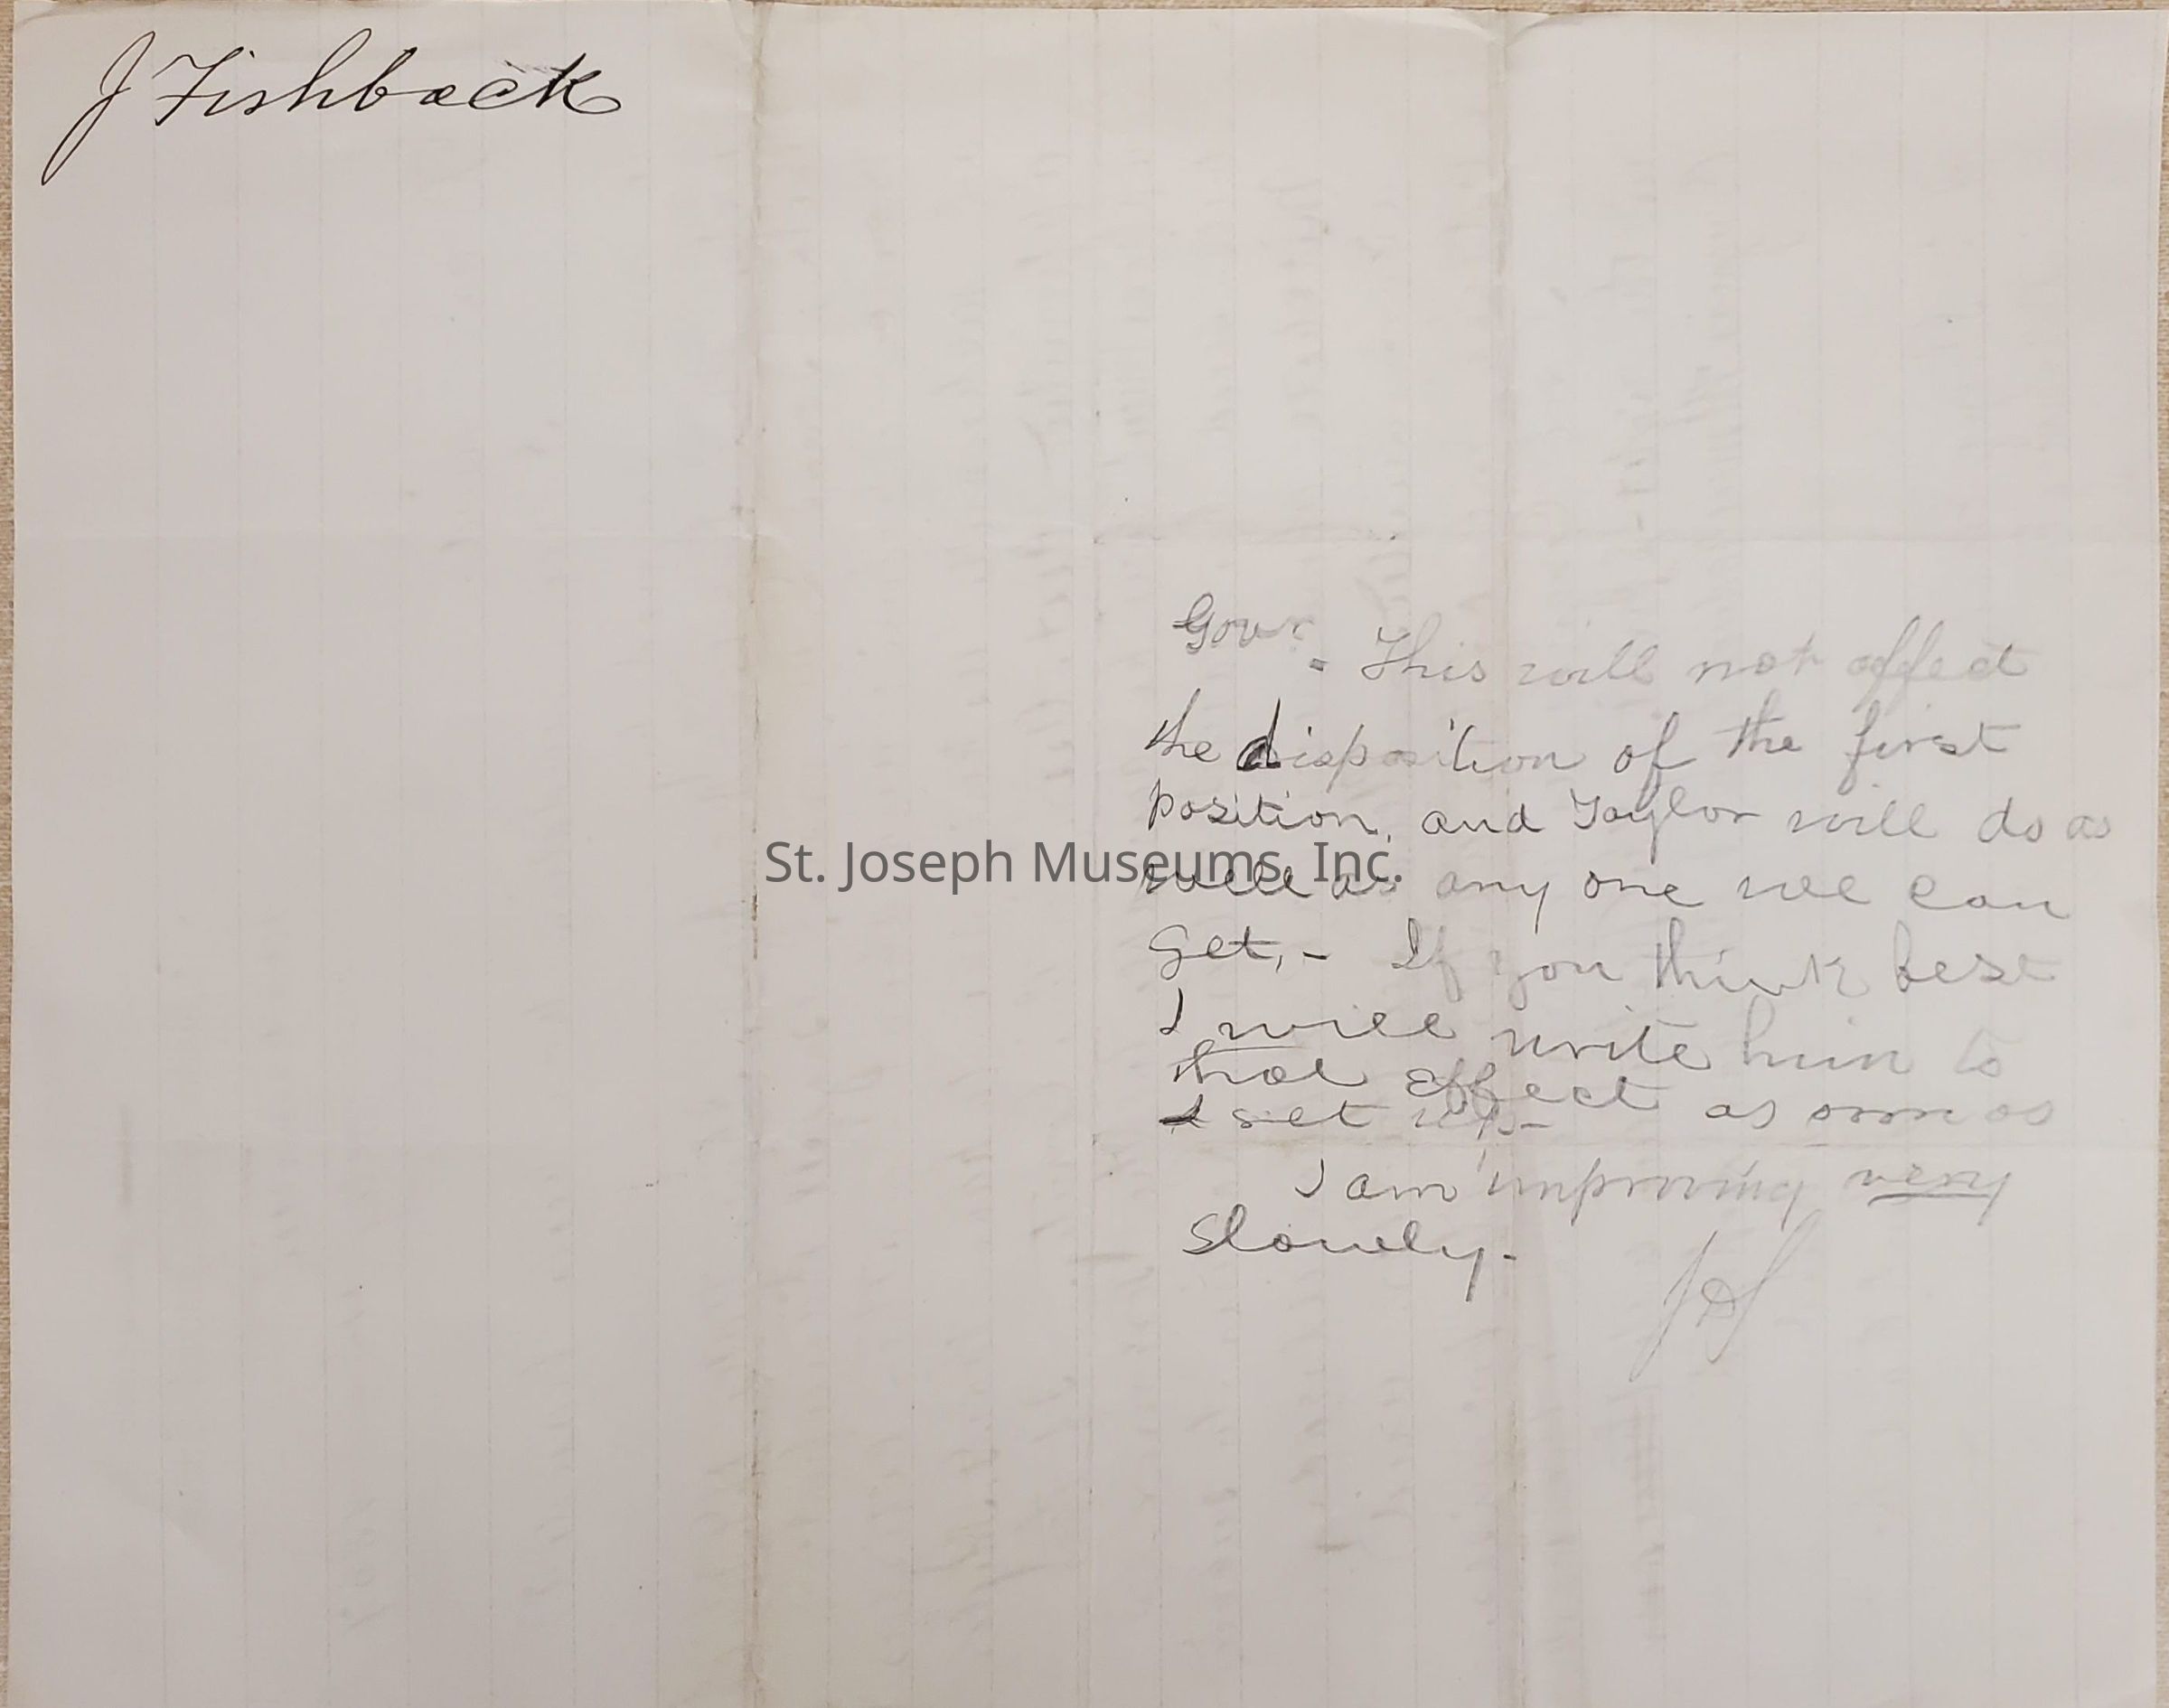 J Fishback
Govr
- This will not affect
the disposition of the first
position, and Taylor will do as
St. Joseph Museums, Inc.
well as any one we can
get, - If you think best
I will write him to
that effect as soon as
I set up -
I am improving very
slowly -